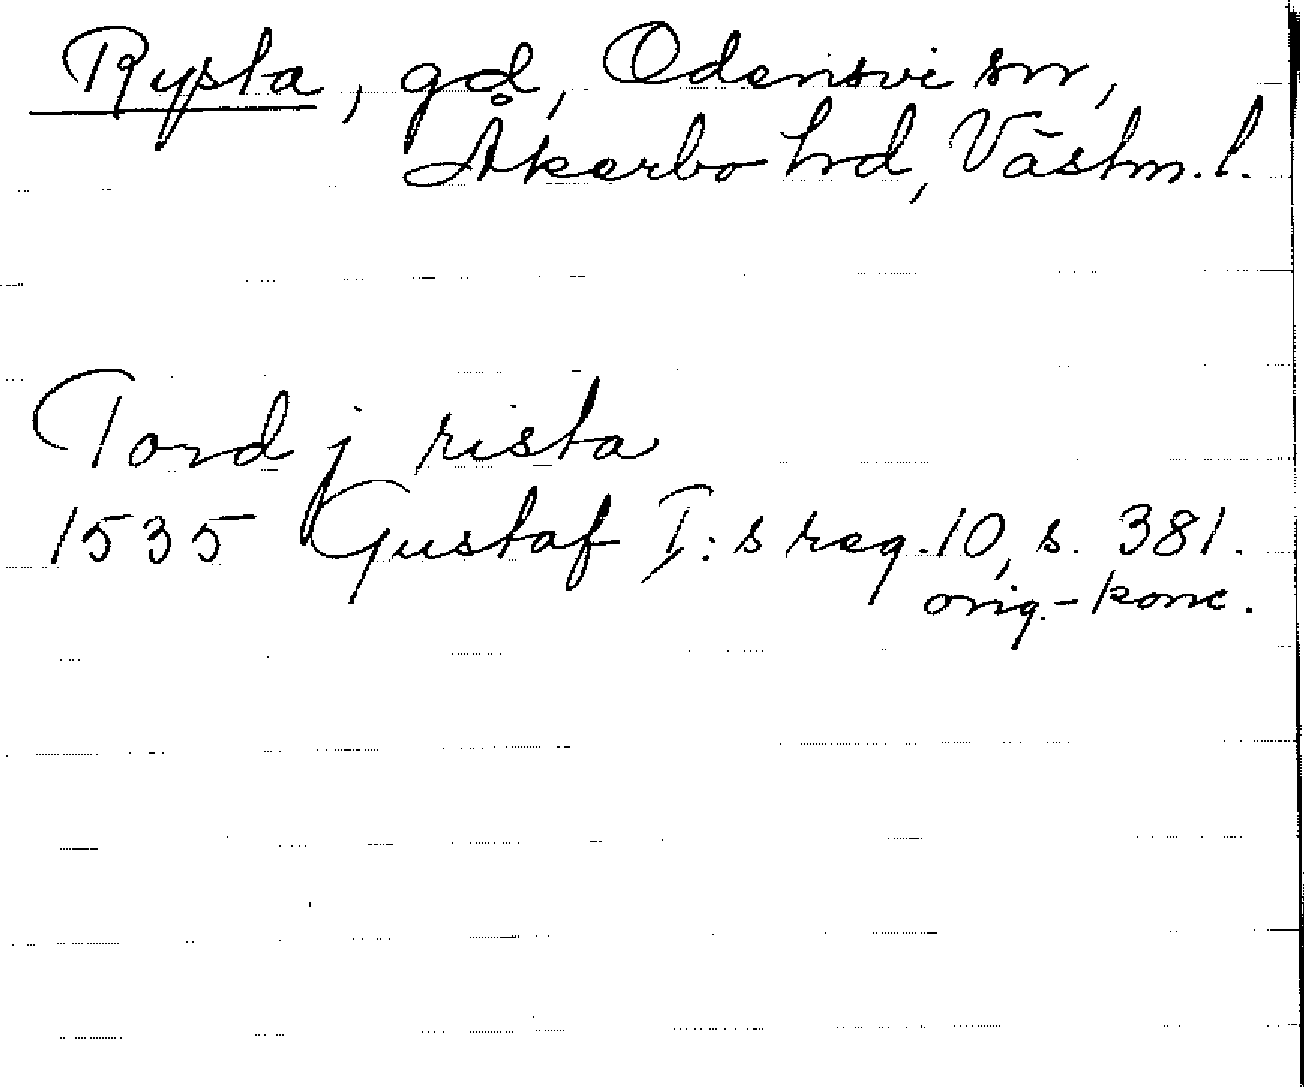 Rysta, gd, Odensvi sn,
Åkerbo hrd, Västm. l.
Tord j rista
1535 Gustaf I:s reg. 10, s. 381.
orig.-konc.